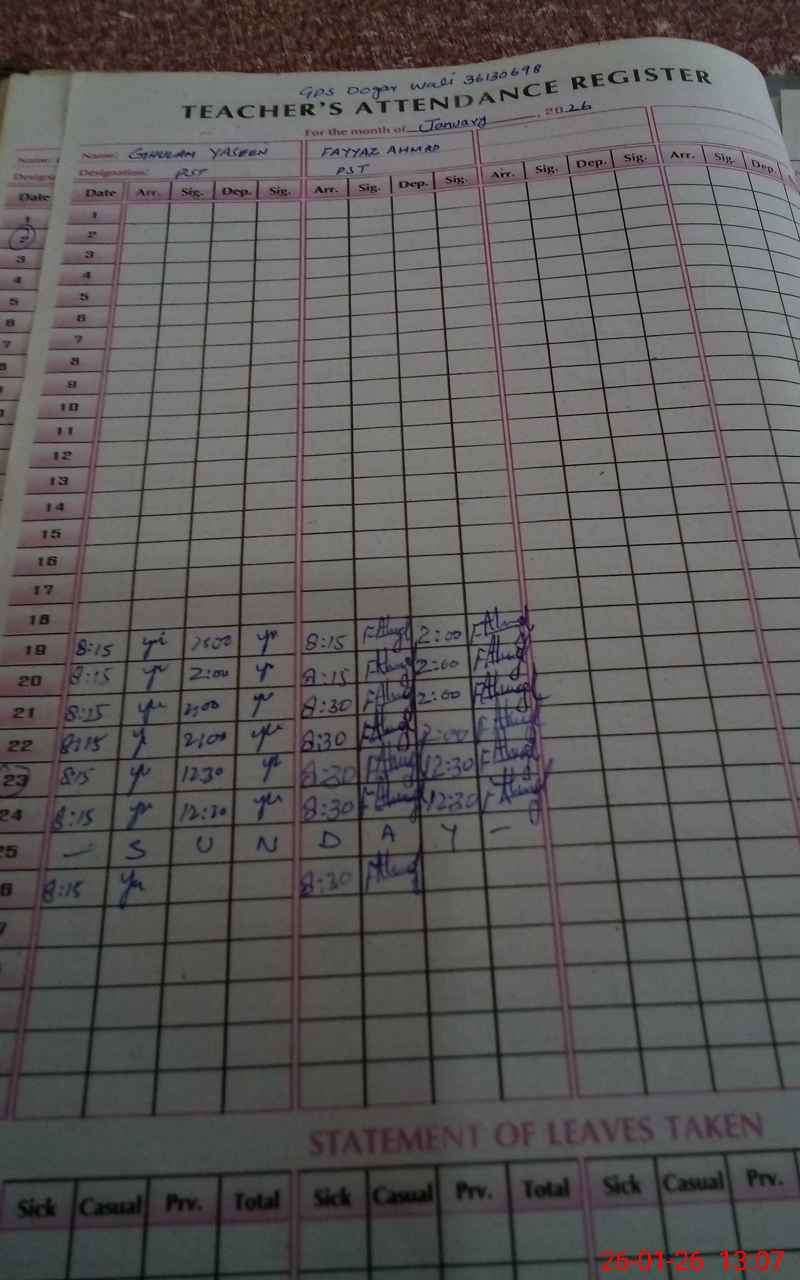 GPS Dogar Wali 36130698
TEACHER'S ATTENDANCE REGISTER
For the month of January, 2026
Name: GHULAM YASEEN FAYYAZ AHMAD
Designation: PST PST
Date Arr. Sig. Dep. Sig. Arr. Sig. Dep. Sig. Arr. Sig. Dep. Sig. Arr. Sig. Dep.
1
2
3
4
5
6
7
8
9
10
11
12
13
14
15
16
17
18
19 8:15 2:00 8:15 2:00
20 8:15 2:00 8:15 2:00
21 8:15 2:00 8:30 2:00
22 8:15 2:00 8:30 2:00
23 8:15 12:30 8:30 12:30
24 8:15 12:30 8:30 12:30
25 — S U N D A Y —
6 8:15 8:30
STATEMENT OF LEAVES TAKEN
Sick Casual Prv. Total Sick Casual Prv. Total Sick Casual Prv.
26-01-26 13:07